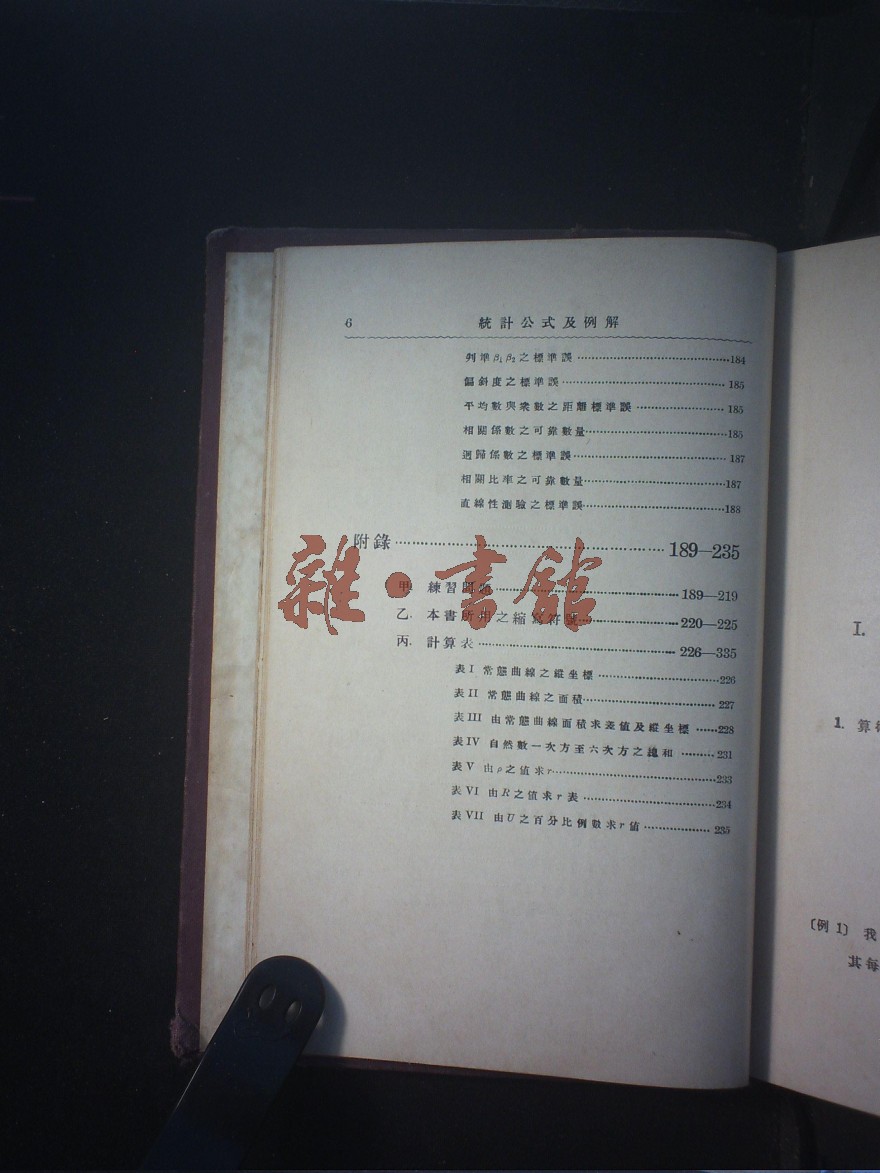 6 統計公式及例解
列準β₁β₂之標準誤 184
偏斜度之標準誤 185
平均數與衆數之距離標準誤 185
相關係數之可靠數量 185
迴歸係數之標準誤 187
相關比率之可靠數量 187
直線性測驗之標準誤 188
附錄 189—235
甲. 練習問題 189—219
乙. 本書所用之縮寫符號 220—225
丙. 計算表 226—335
表I 常態曲線之縱坐標 226
表II 常態曲線之面積 227
表III 由常態曲線面積求差值及縱坐標 228
表IV 自然數一次方至六次方之總和 231
表V 由ρ之值求r 233
表VI 由R之值求r表 234
表VII 由U之百分比例數求r值 235
雜·書館
I.
1. 算
〔例 1〕 我
其每